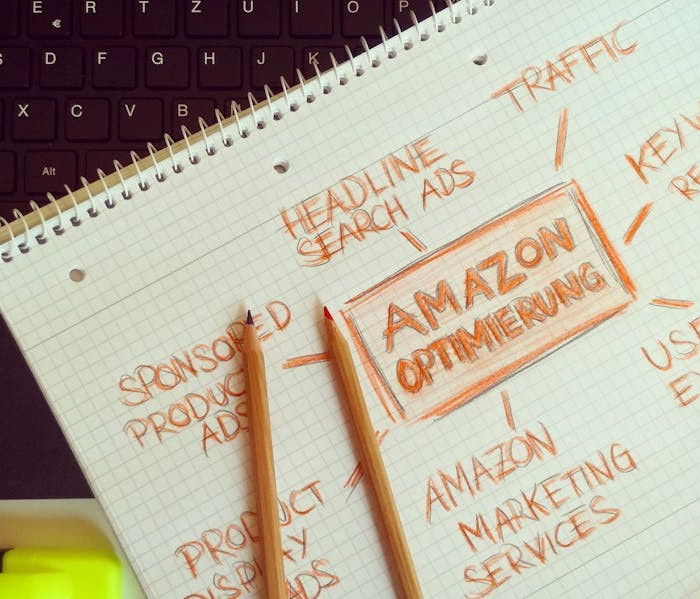 E R T Z U I O P
€
S D F G H J K
X C V B
Alt
TRAFFIC
HEADLINE
SEARCH ADS
KEYW
RE
AMAZON
OPTIMIERUNG
SPONSORED
PRODUCT
ADS
USE
EV
AMAZON
MARKETING
SERVICES
PRODUCT
DISPLAY
ADS